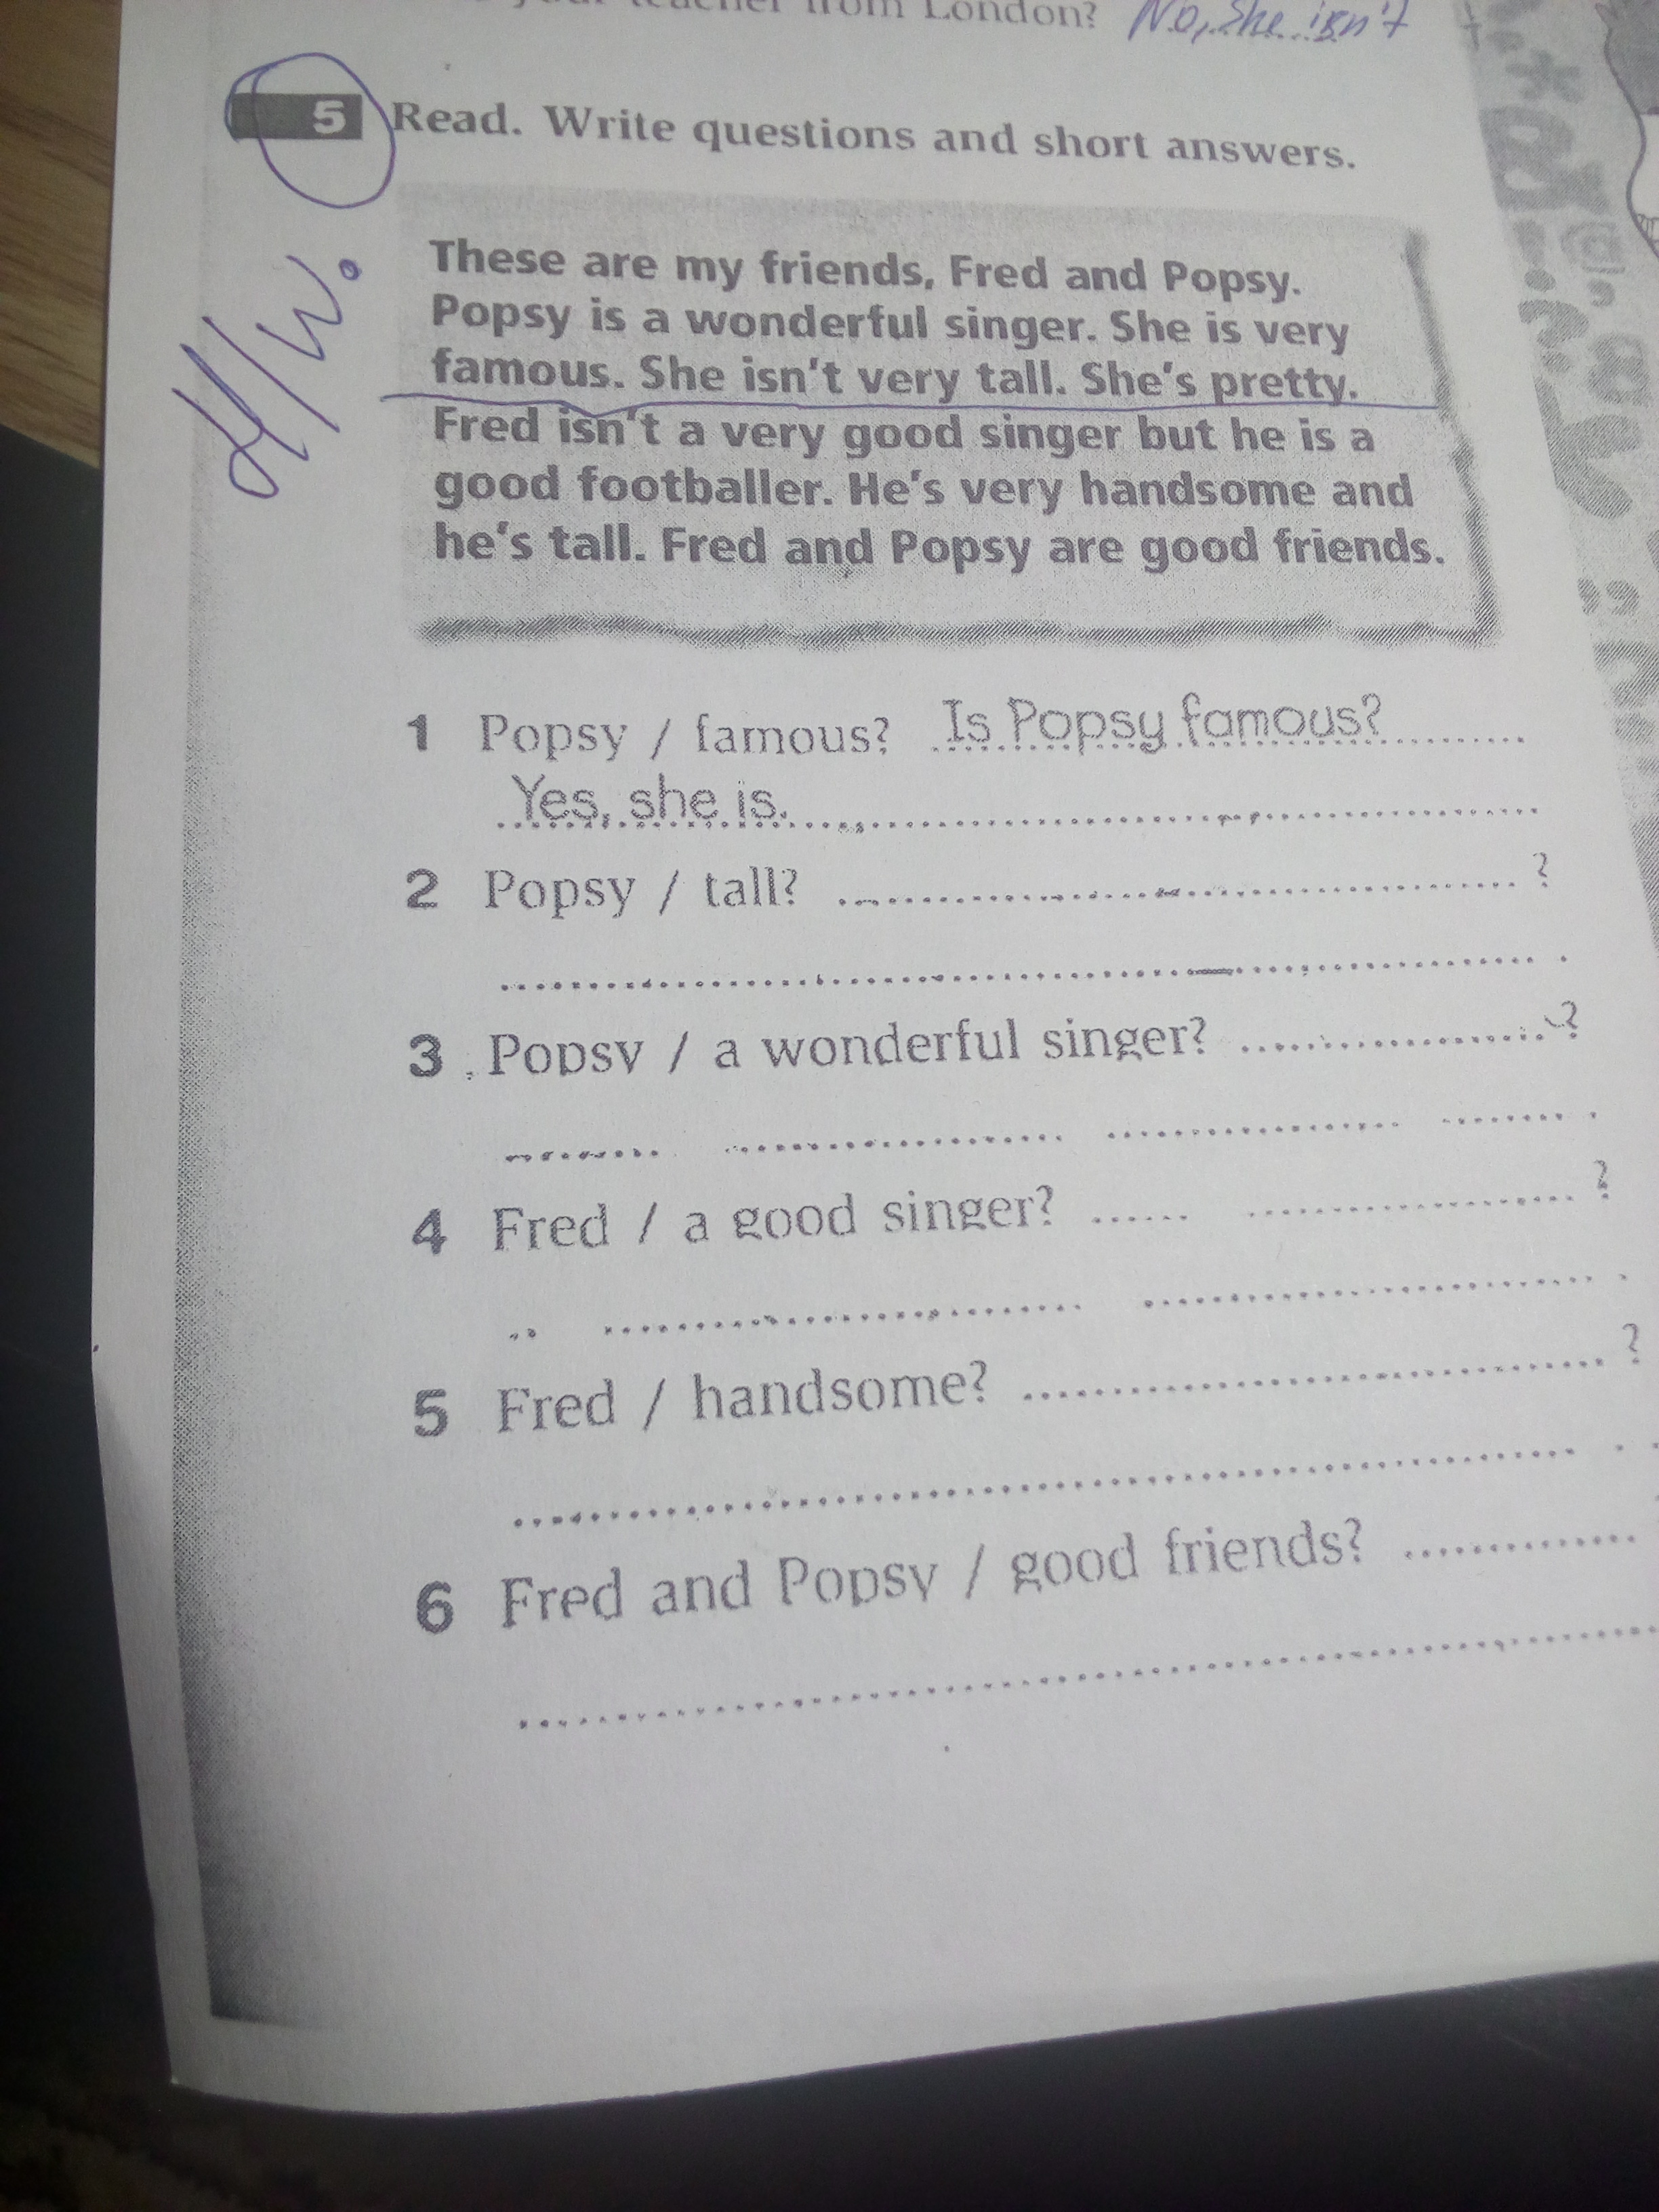 teacher from London? No, she isn't
5 Read. Write questions and short answers.
H/w.
These are my friends, Fred and Popsy.
Popsy is a wonderful singer. She is very
famous. She isn't very tall. She's pretty.
Fred isn't a very good singer but he is a
good footballer. He's very handsome and
he's tall. Fred and Popsy are good friends.
1 Popsy / famous? Is Popsy famous?
Yes, she is.
2 Popsy / tall? ?
3 Popsy / a wonderful singer? ?
4 Fred / a good singer? ?
5 Fred / handsome? ?
6 Fred and Popsy / good friends?